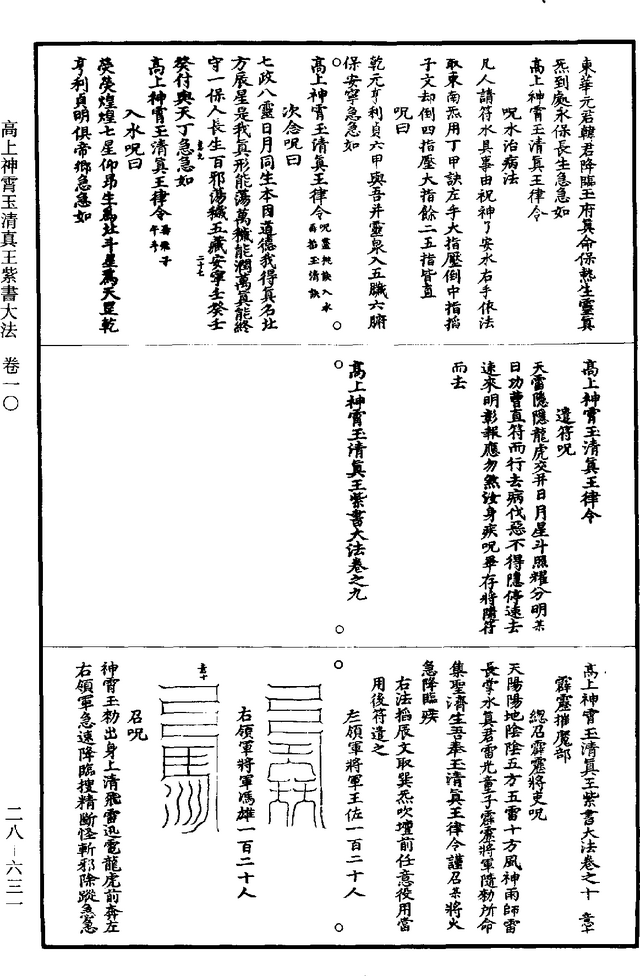 東華元君韓君降臨玉府眞命保熱生靈眞
炁到處永保長生急急如
高上神霄玉清眞王律令
呪水治病法
凡人請符水具事由祝神了安水右手依法
取東南炁用丁甲訣左手大指壓倒中指掐
子文却倒四指壓大指餘二五指皆直
呪曰
乾元亨利貞六甲與吾并靈泉入五臟六腑
保安寧急急如
高上神霄玉清眞王律令呪畢訣入水再掐玉清訣
次念呪曰
七政八靈日月同生本因道德我得眞名北
方辰星是我眞形能蕩萬穢能潤萬眞能終
守一保人長生百邪蕩穢五藏安寧壬癸壬
癸付與天丁急急如
高上神霄玉清眞王律令
入水呪曰
熒熒煌煌七星仰昂生爲北斗星爲天罡乾
亨利貞明俱帝鄉急急如
高上神霄玉清眞王律令
遣符呪
天雷隱隱龍虎交并日月星斗照耀分明某
日功曹直符而行去病伐惡不得隱停速去
速來明彰報應勿煞汝身疾呪畢存將隨符
而去
高上神霄玉清眞王紫書大法卷之九
高上神霄玉清眞王紫書大法卷之十
霹靂摧魔部
總召霹靂將吏呪
天陽陽地陰陰五方五雷十方風神雨師雷
長掌水眞君雷光童子霹靂將軍隨勑所命
集聖濟生吾奉玉清眞王律令謹召某將火
急降臨疾
右法掐辰文取巽炁吹壇前任意役用當
用後符遣之
左領軍將軍王佐一百二十人
右領軍將軍馮雄一百二十人
召呪
神霄玉勑出身上清飛雷迅電龍虎前奔左
右領軍急速降臨搜精斷怪斬邪除蹤急急
高上神霄玉清真王紫書大法 卷一〇
二八－六三一